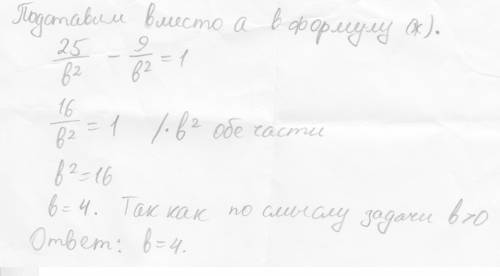 Подставим вместо а в формулу (*).
25/в² - 9/в² = 1
16/в² = 1 /·в² обе части
в² = 16
в = 4. Так как по смыслу задачи в>0
Ответ: в = 4.